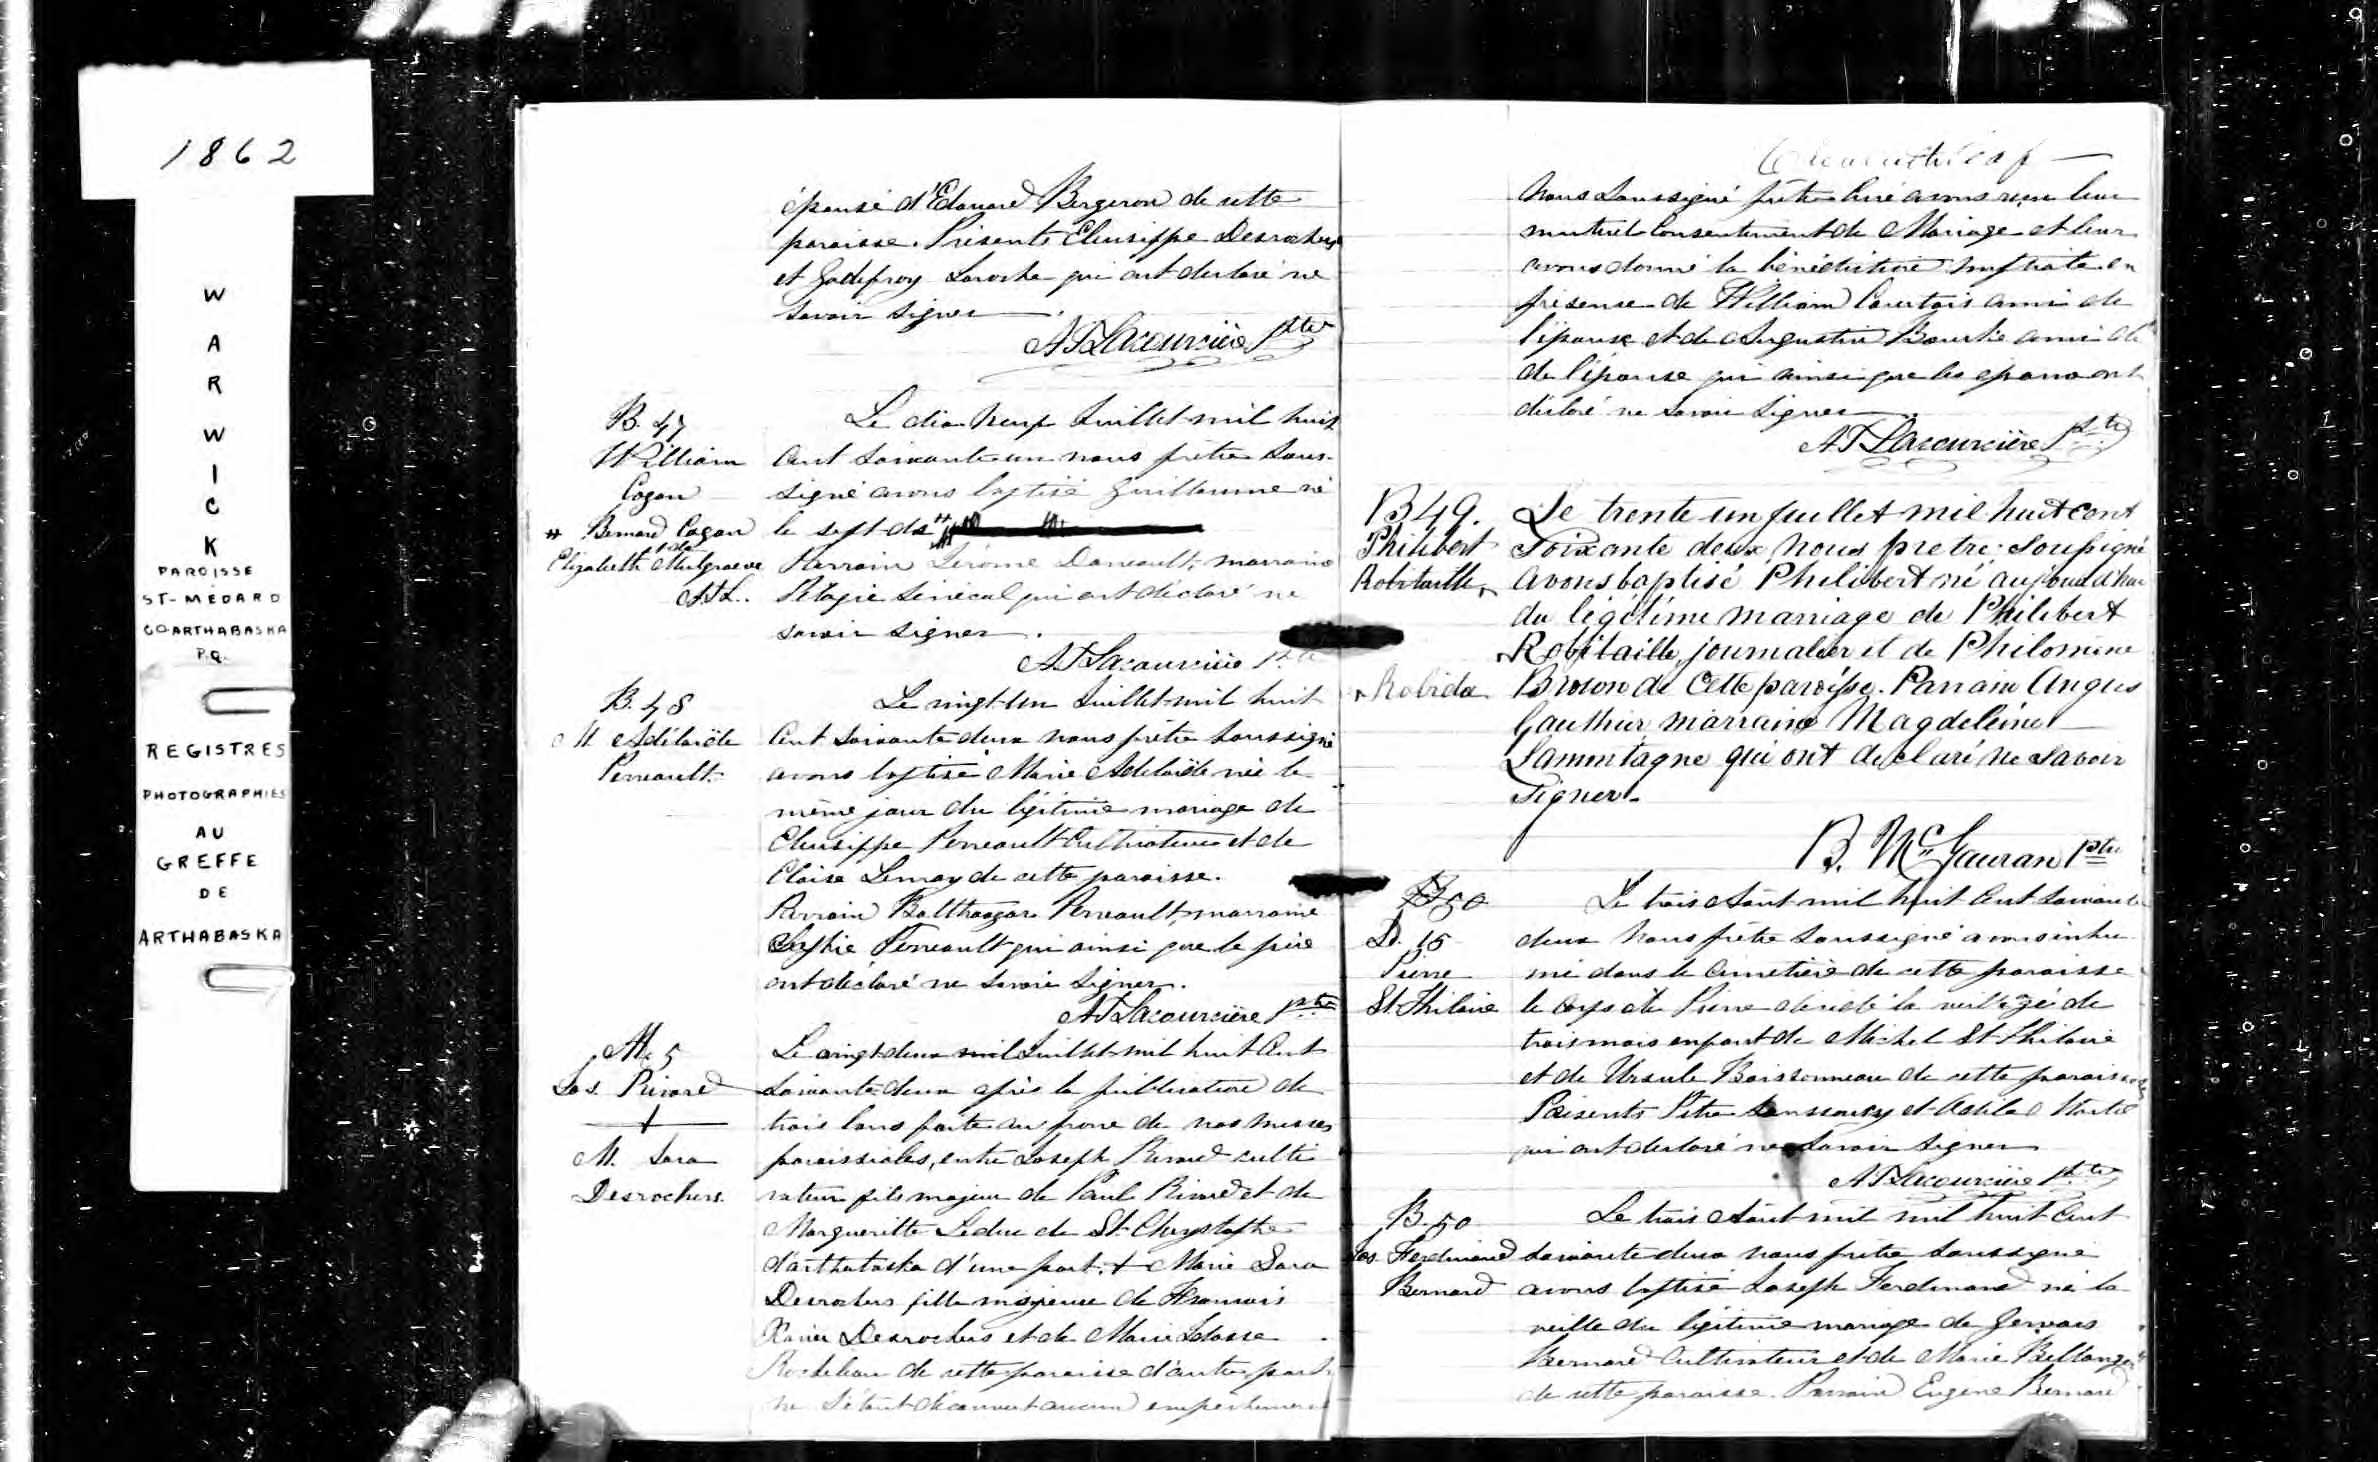 1862
W
A
R
W
I
C
K
PAROISSE
ST-MÉDARD
CO ARTHABASKA
P.Q.
REGISTRES
PHOTOGRAPHIES
AU
GREFFE
DE
ARTHABASKA
épouse d'Edouard Bergeron de cette
paroisse. Présents Eleusippe Desrochers
et Godefroy Laroche qui ont déclaré ne
savoir signer
ATLacourcière Ptre
B. 47
William
Cogan
# Bernard Cogan
et de
Elizabeth Mulgraeve
A.T.L.
Le dix neuf Juillet mil huit
cent soixante un nous prêtre sous-
signé avons baptisé Guillaume né
le sept de #
Parrain Jérome Daneault, marraine
Pélagie Sénécal qui ont déclaré ne
savoir signer.
ATLacourcière Ptre
B. 48
M Adélaïde
Perreault
Le vingt-un Juillet mil huit
cent soixante deux nous prêtre soussigné
avons baptisé Marie Adélaïde née le
même jour du légitime mariage de
Eleusippe Perreault Cultivateur et de
Eloise Lemay de cette paroisse.
Parrain Balthazar Perreault, marraine
Sophie Perreault qui ainsi que le père
ont déclaré ne savoir signer.
ATLacourcière Ptre
M. 5
Jos. Rivard
+
M. Sara
Desrochers
Le vingt deux mil Juillet mil huit cent
soixante-deux après la publication de
trois bans faite au prone de nos messes
paroissiales, entre Joseph Rivard culti
vateur fils majeur de Paul Rivard et de
Marguerite Leduc de St. Chrystophe
d'arthabaska d'une part. & Marie Sara
Desrochers fille majeure de Francois
Xavier Desrochers et de Marie
Rocheleau de cette paroisse d'autre part
ne s'étant découvert aucun empêchement
nous soussigné prêtre curé avons reçu leur
mutuel consentement de Mariage et leur
avons donné la bénédiction nuptiale en
présence de William Courtois ami de
l'épouse et de Augustin Bourke ami de
de l'épouse qui ainsi que les epoux ont
déclaré ne savoir signer
ATLacourcière Ptre
B 49.
Philibert
Robitaille
Robida
Le trente un juillet mil huit cent
Soixante deux, nous prêtre soussigné
avons baptisé Philibert né aujourd'hui
du légitime marriage de Philibert
Robitaille, journalier et de Philomène
Brown de cette paroisse. Parrain Angus
Gauthier, marraine Magdeleine
Lamontagne qui ont declaré ne savoir
signer.
B. McGauran Ptre
B 50
D. 15
Pierre
St. Hilaire
Le trois Août mil huit cent soixante
deux nous prêtre soussigné avons inhu
mé dans le cimetière de cette paroisse
le corps de Pierre décédé la veille agé de
trois mois enfant de Michel St. Hilaire
et de Ursule Boissonneau de cette paroisse
Présents Pitre Sanssoucy et
qui ont déclaré ne savoir signer
ATLacourcière Ptre
B. 50
Jos. Ferdinand
Bernard
Le trois Août mil mil huit cent
soixante deux nous prêtre soussigné
avons baptisé Joseph Ferdinand né la
veille du légitime mariage de Gervais
Bernard Cultivateur et de Marie Bellanger
de cette paroisse. Parrain Eugène Bernard